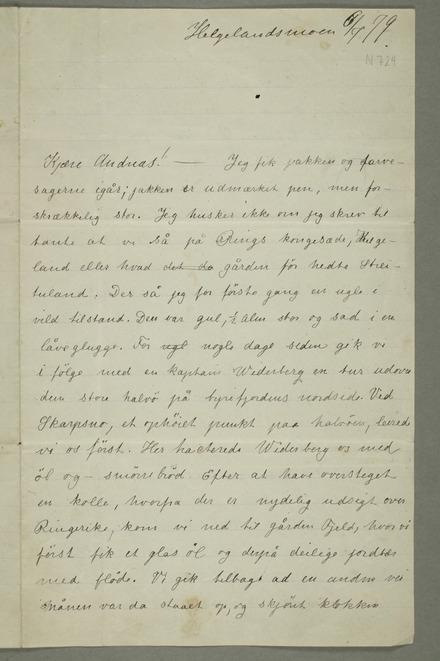 Helgelandsmoen 6/7 79.
N 724
Kjære Andreas! — Jeg fik pakken og farve-
sagerne igår; jakken er udmærket pen, men for-
skrækkelig stor. Jeg husker ikke om jeg skrev til
tante at vi så på Rings kongesæde, Helge-
land eller hvad det da gården för hedte Stei-
nland. Der så jeg for förste gang en ugle i
vild tilstand. Den var gul, ½ alen stor og sad i en
låveglugge. For nogle dage siden gik vi
i fölge med en kaptain Widerberg en tur udover
den store halvö på Tyrifjordens nordside. Ved
Skarpsno, et ophöiet punkt paa halvöen, leired
vi os först. Her trakterede Widerberg os med
öl og – smörrebröd. Efter at have oversteget
en kolle, hvorfra der er nydelig udsigt over
Ringerike, kom vi ned til gården Fjeld, hvor vi
först fik et glas öl og derpå deilige jordbær
med flöde. Vi gik tilbage ad en anden vei
månen var da staaet op, og skjönt klokken